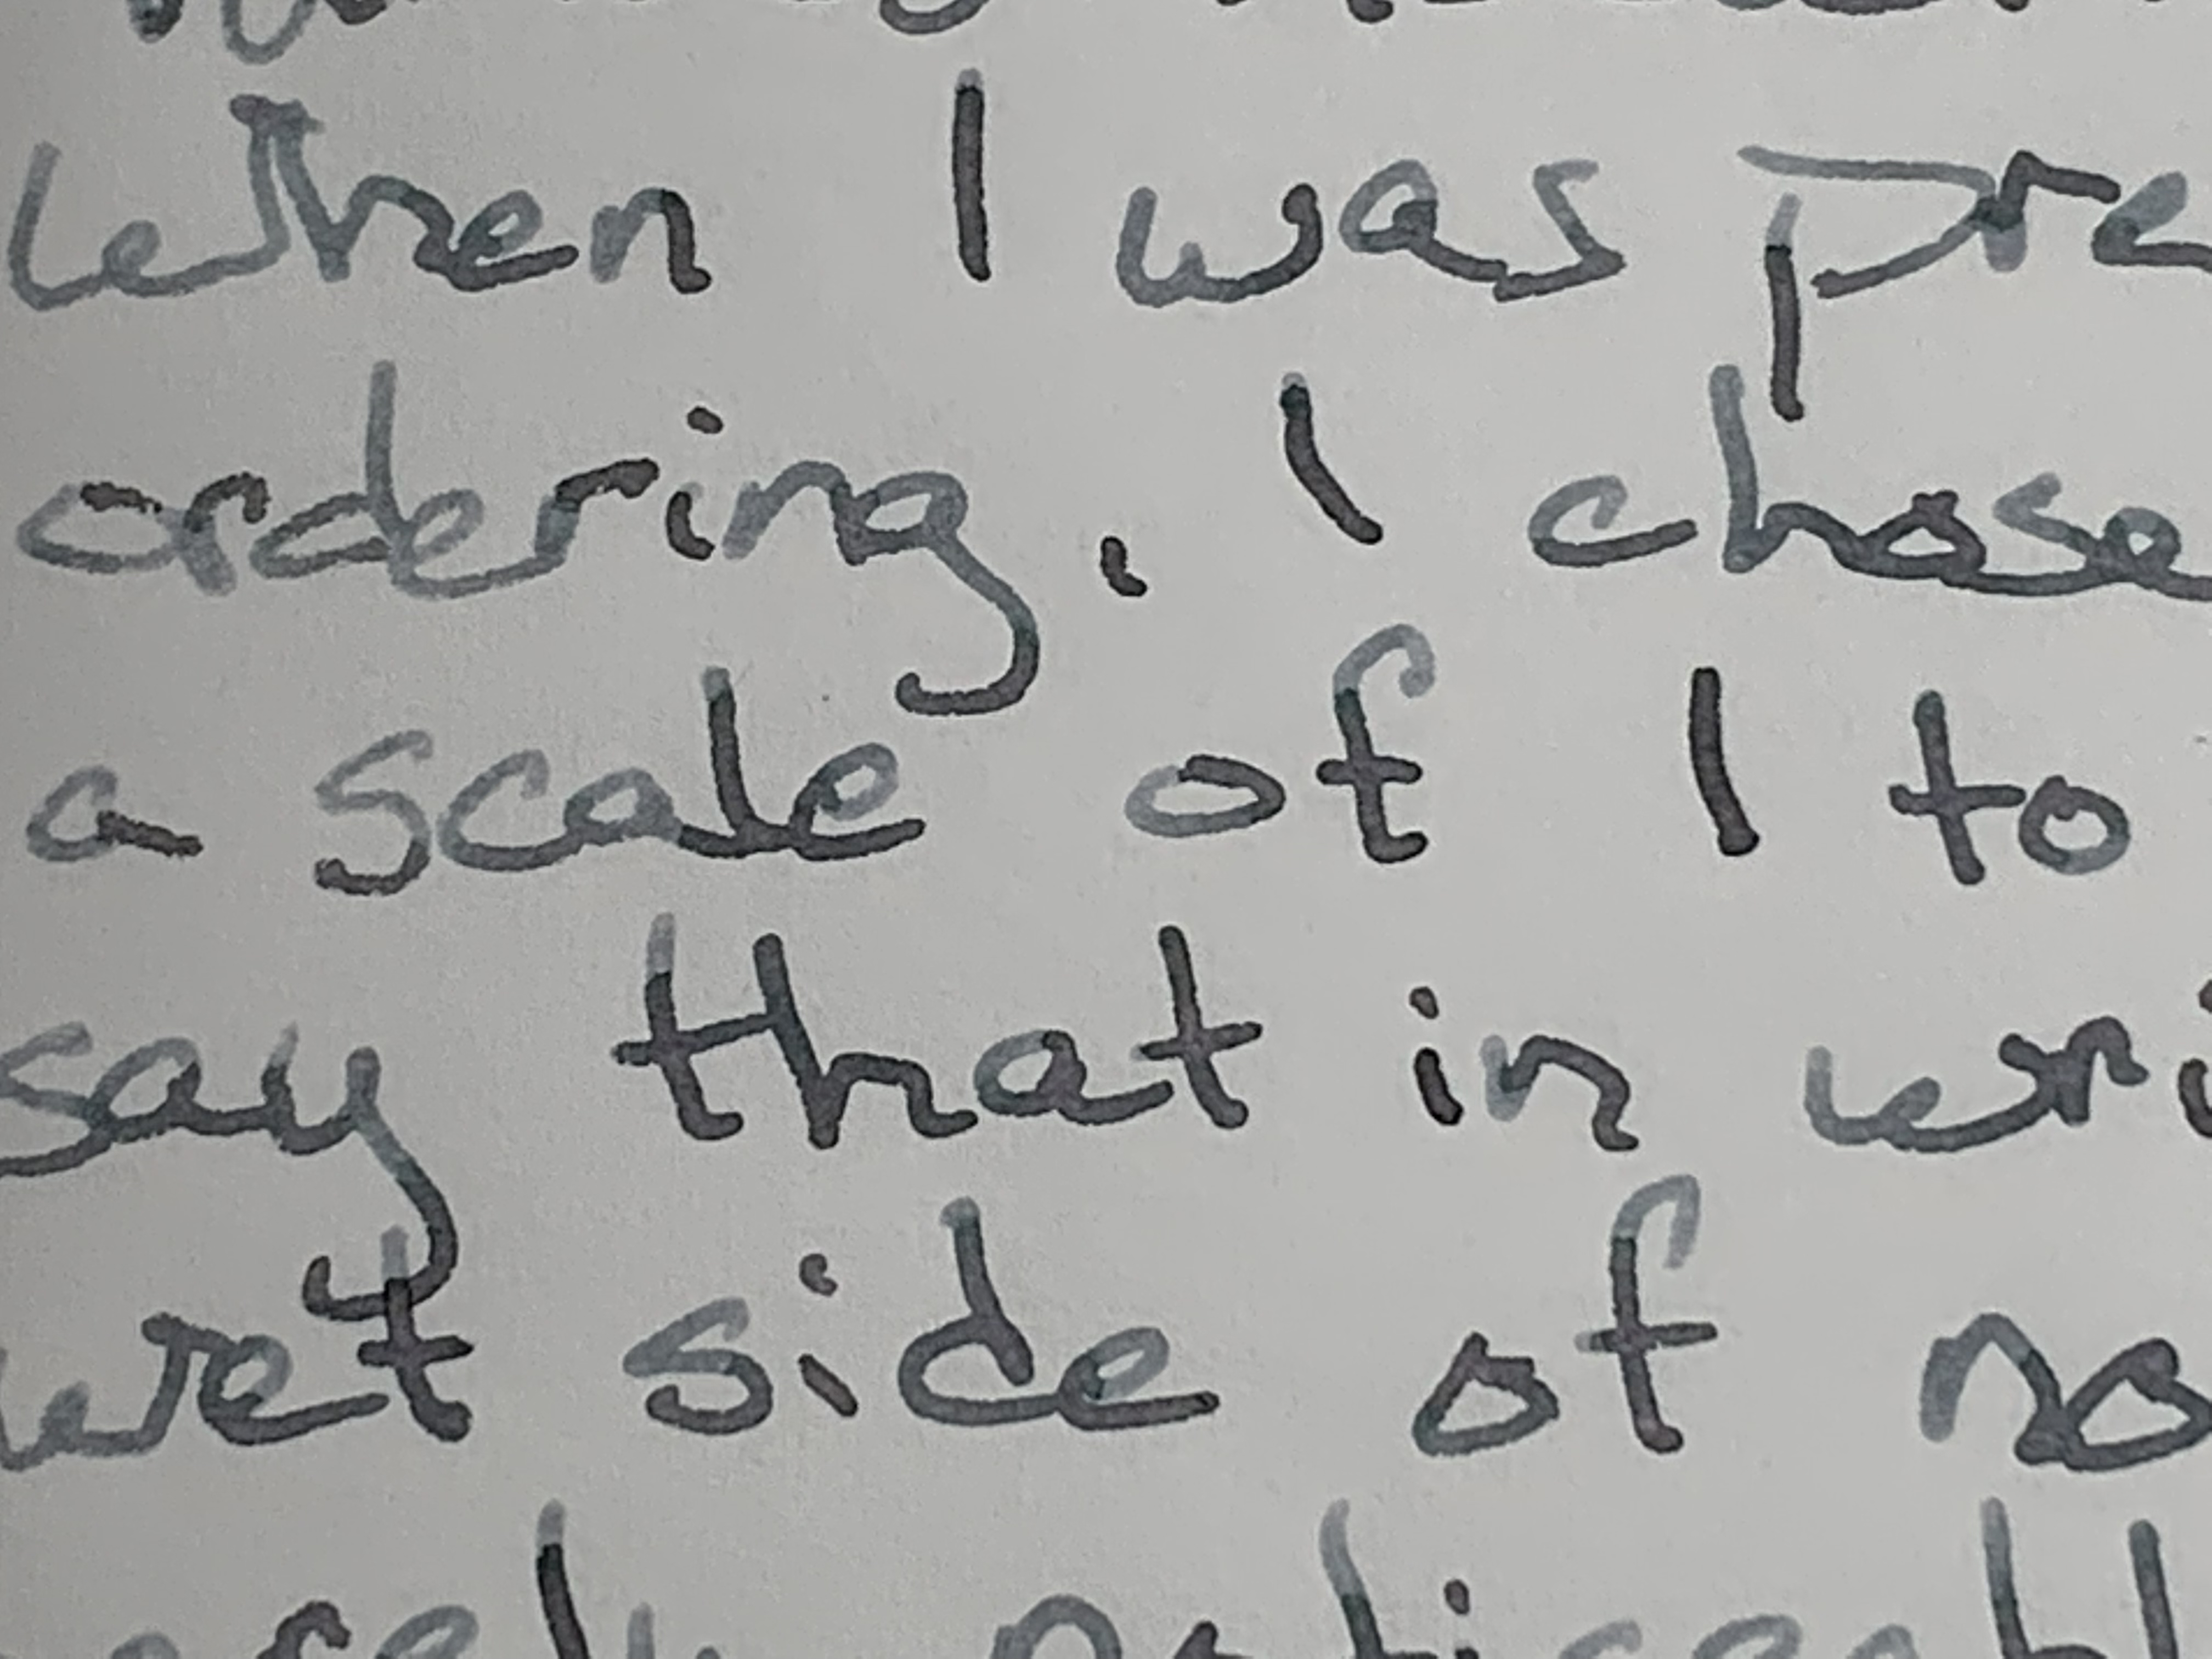 When I was pre
ordering, I chose
a scale of 1 to
say that in wri
wet side of no